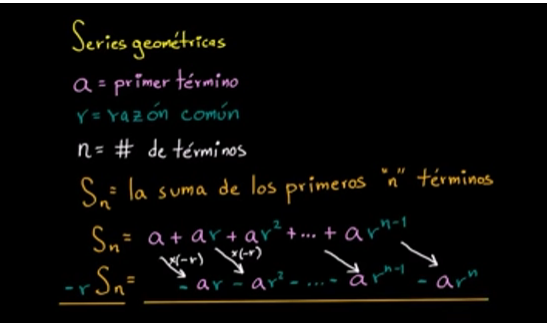 Series geométricas
a = primer término
r = razón común
n = # de términos
Sₙ = la suma de los primeros "n" términos
Sₙ = a + ar + ar² + ... + arⁿ⁻¹
x(-r) x(-r)
-r Sₙ = - ar - ar² - ... - arⁿ⁻¹ - arⁿ